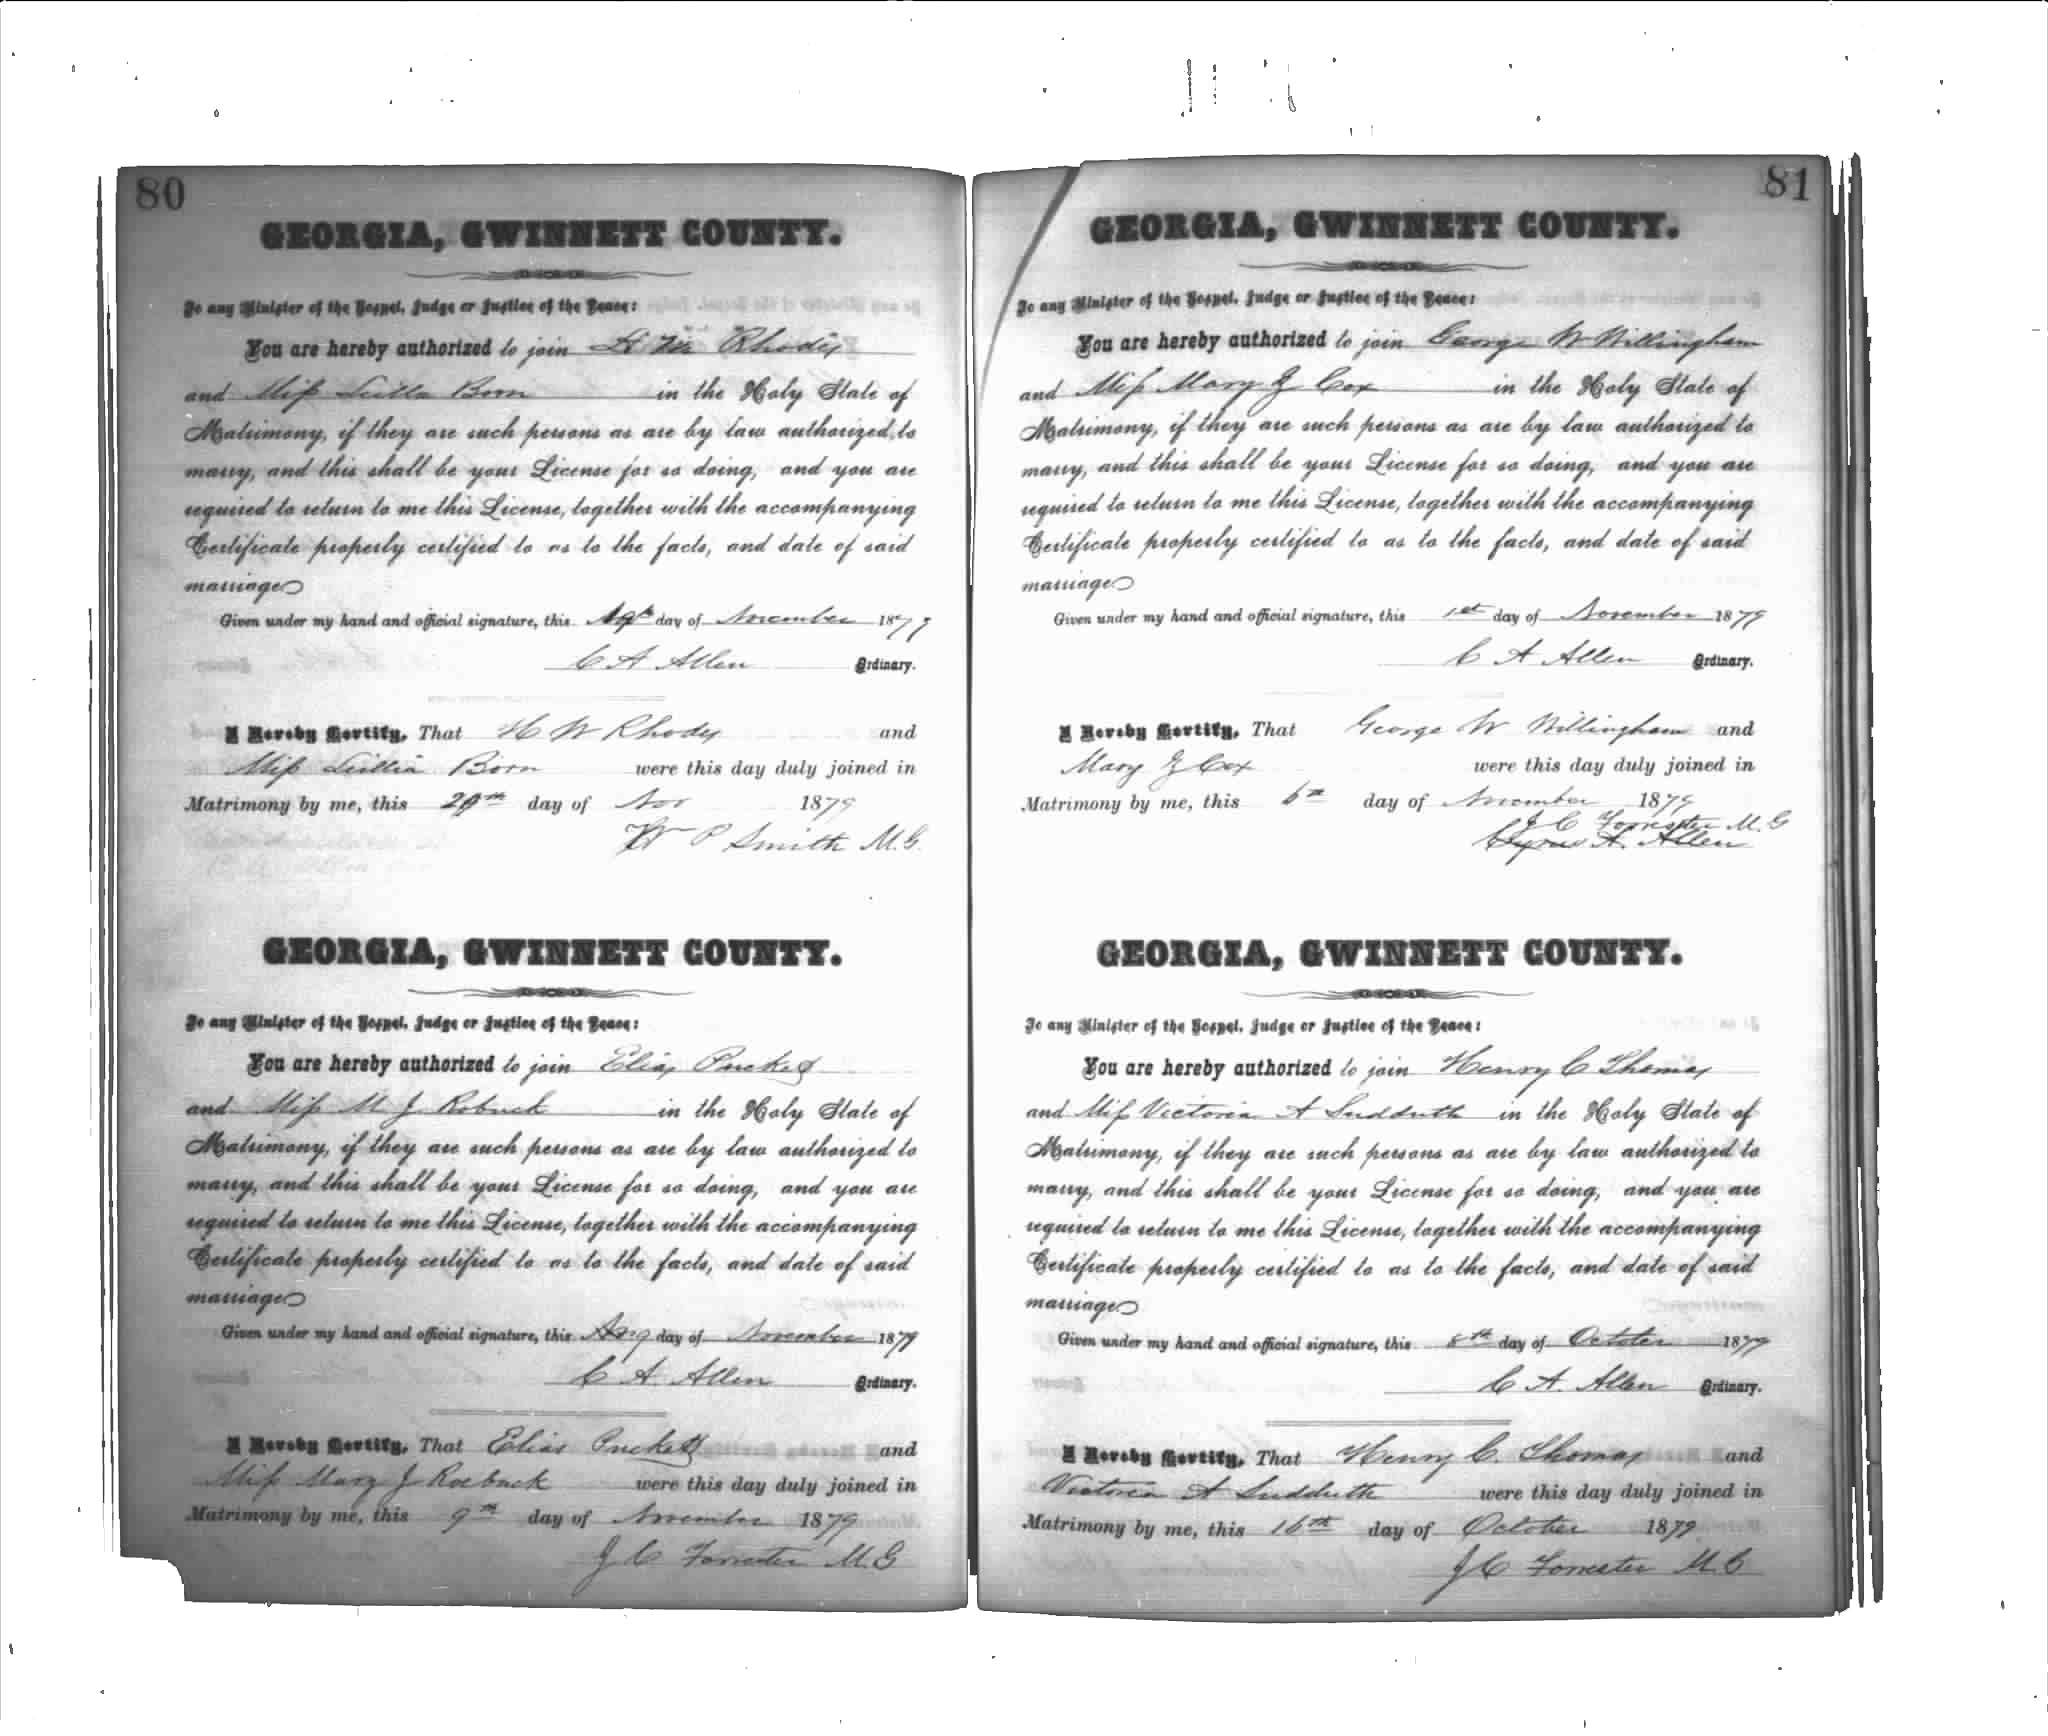 80
GEORGIA, GWINNETT COUNTY.
To any Minister of the Gospel, Judge or Justice of the Peace:
You are hereby authorized to join Rhodes
and Miss Lillia Born in the Holy State of
Matrimony, if they are such persons as are by law authorized to
marry, and this shall be your License for so doing, and you are
required to return to me this License, together with the accompanying
Certificate properly certified to as to the facts, and date of said
marriage
Given under my hand and official signature, this day of November 1879
C A Allen Ordinary.
I Hereby Certify, That H W Rhodes and
Miss Lillia Born were this day duly joined in
Matrimony by me, this day of Nov 1879
W P Smith M.G.
GEORGIA, GWINNETT COUNTY.
To any Minister of the Gospel, Judge or Justice of the Peace:
You are hereby authorized to join Elias Puckett
and Miss M J Robuck in the Holy State of
Matrimony, if they are such persons as are by law authorized to
marry, and this shall be your License for so doing, and you are
required to return to me this License, together with the accompanying
Certificate properly certified to as to the facts, and date of said
marriage
Given under my hand and official signature, this day of November 1879
C A Allen Ordinary.
I Hereby Certify, That Elias Puckett and
Miss Mary J Roebuck were this day duly joined in
Matrimony by me, this 9th day of November 1879
J C Forrester M.G
81
GEORGIA, GWINNETT COUNTY.
To any Minister of the Gospel, Judge or Justice of the Peace:
You are hereby authorized to join George W Willingham
and Miss Mary J Cox in the Holy State of
Matrimony, if they are such persons as are by law authorized to
marry, and this shall be your License for so doing, and you are
required to return to me this License, together with the accompanying
Certificate properly certified to as to the facts, and date of said
marriage
Given under my hand and official signature, this 1st day of November 1879
C A Allen Ordinary.
I Hereby Certify, That George W Willingham and
Mary J Cox were this day duly joined in
Matrimony by me, this 6th day of November 1879
J C Forrester M.G
Cyrus A. Allen
GEORGIA, GWINNETT COUNTY.
To any Minister of the Gospel, Judge or Justice of the Peace:
You are hereby authorized to join Henry C Thomas
and Miss Victoria A Sudduth in the Holy State of
Matrimony, if they are such persons as are by law authorized to
marry, and this shall be your License for so doing, and you are
required to return to me this License, together with the accompanying
Certificate properly certified to as to the facts, and date of said
marriage
Given under my hand and official signature, this 8th day of October 1879
C A. Allen Ordinary.
I Hereby Certify, That Henry C. Thomas and
Victoria A Sudduth were this day duly joined in
Matrimony by me, this 16th day of October 1879
J C Forrester M.G